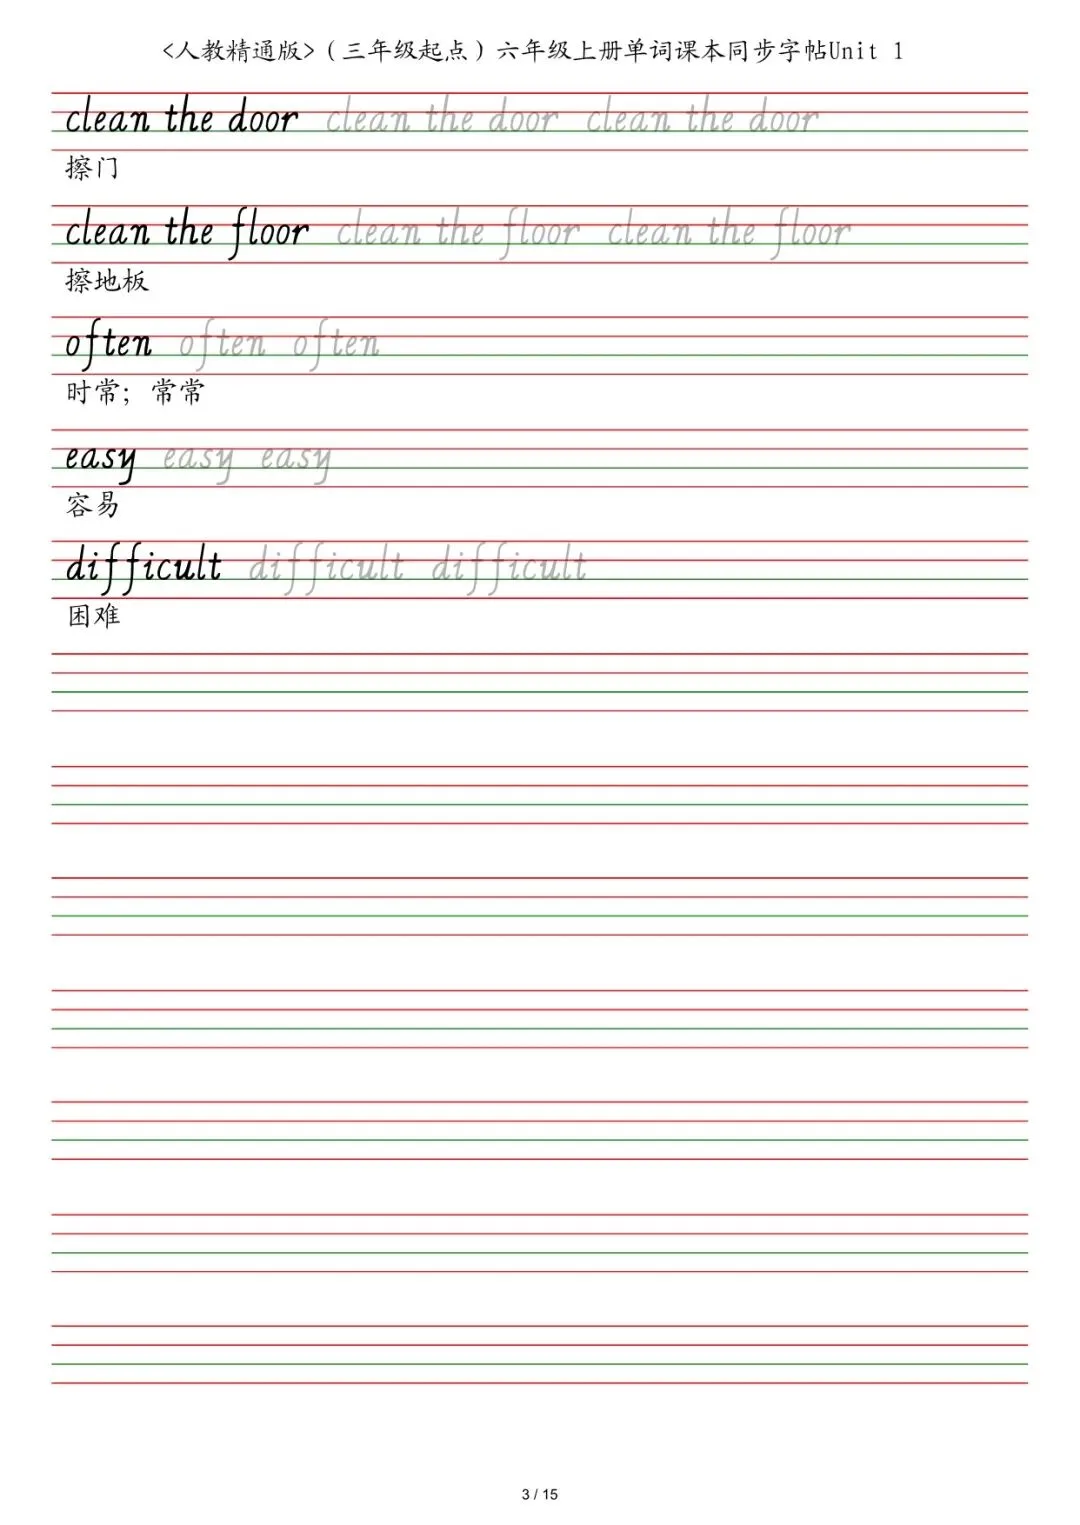 <人教精通版>（三年级起点）六年级上册单词课本同步字帖Unit 1
clean the door clean the door clean the door
擦门
clean the floor clean the floor clean the floor
擦地板
often often often
时常；常常
easy easy easy
容易
difficult difficult difficult
困难
3 / 15